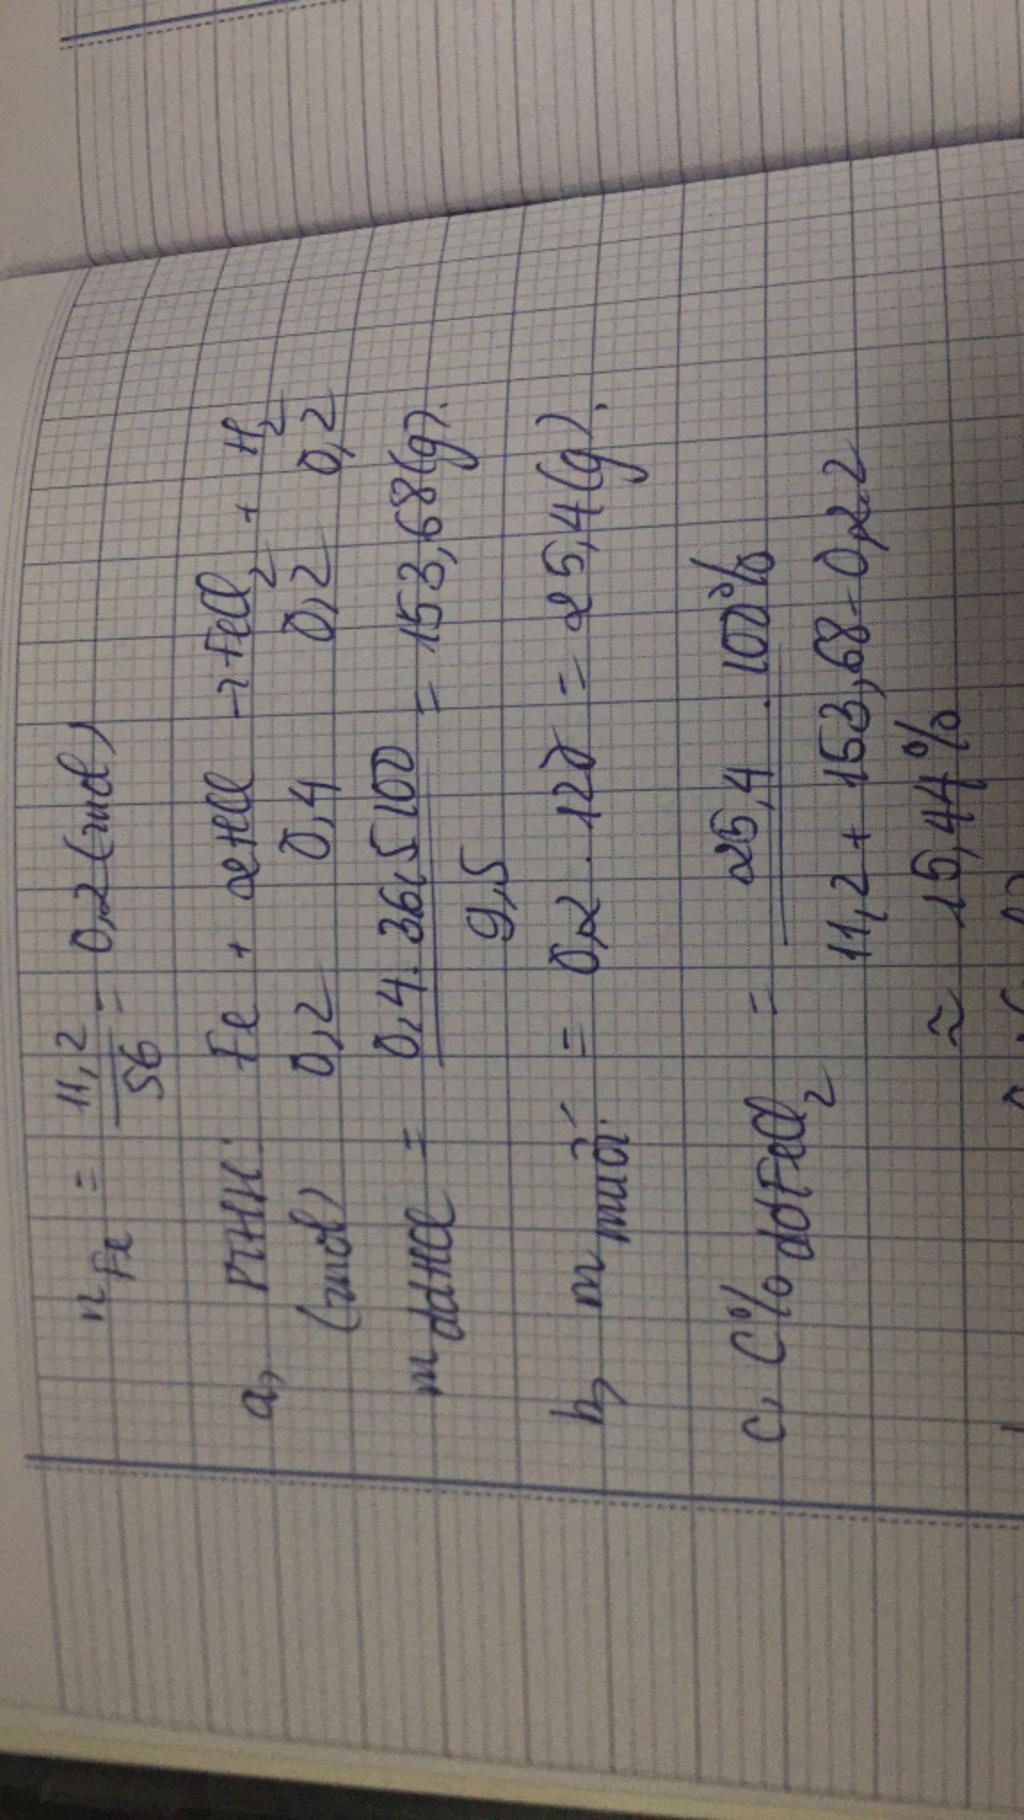 n Fe = 11,2 / 56 = 0,2 (mol)
a, PTHH: Fe + 2HCl → FeCl2 + H2
(mol) 0,2 0,4 0,2 0,2
m ddHCl = 0,4.36,5.100 / 9,5 = 153,68 (g).
b, m muối = 0,2 . 127 = 25,4 (g).
c, C% ddFeCl2 = 25,4 . 100% / 11,2 + 153,68 - 0,2.2
≈ 15,44%